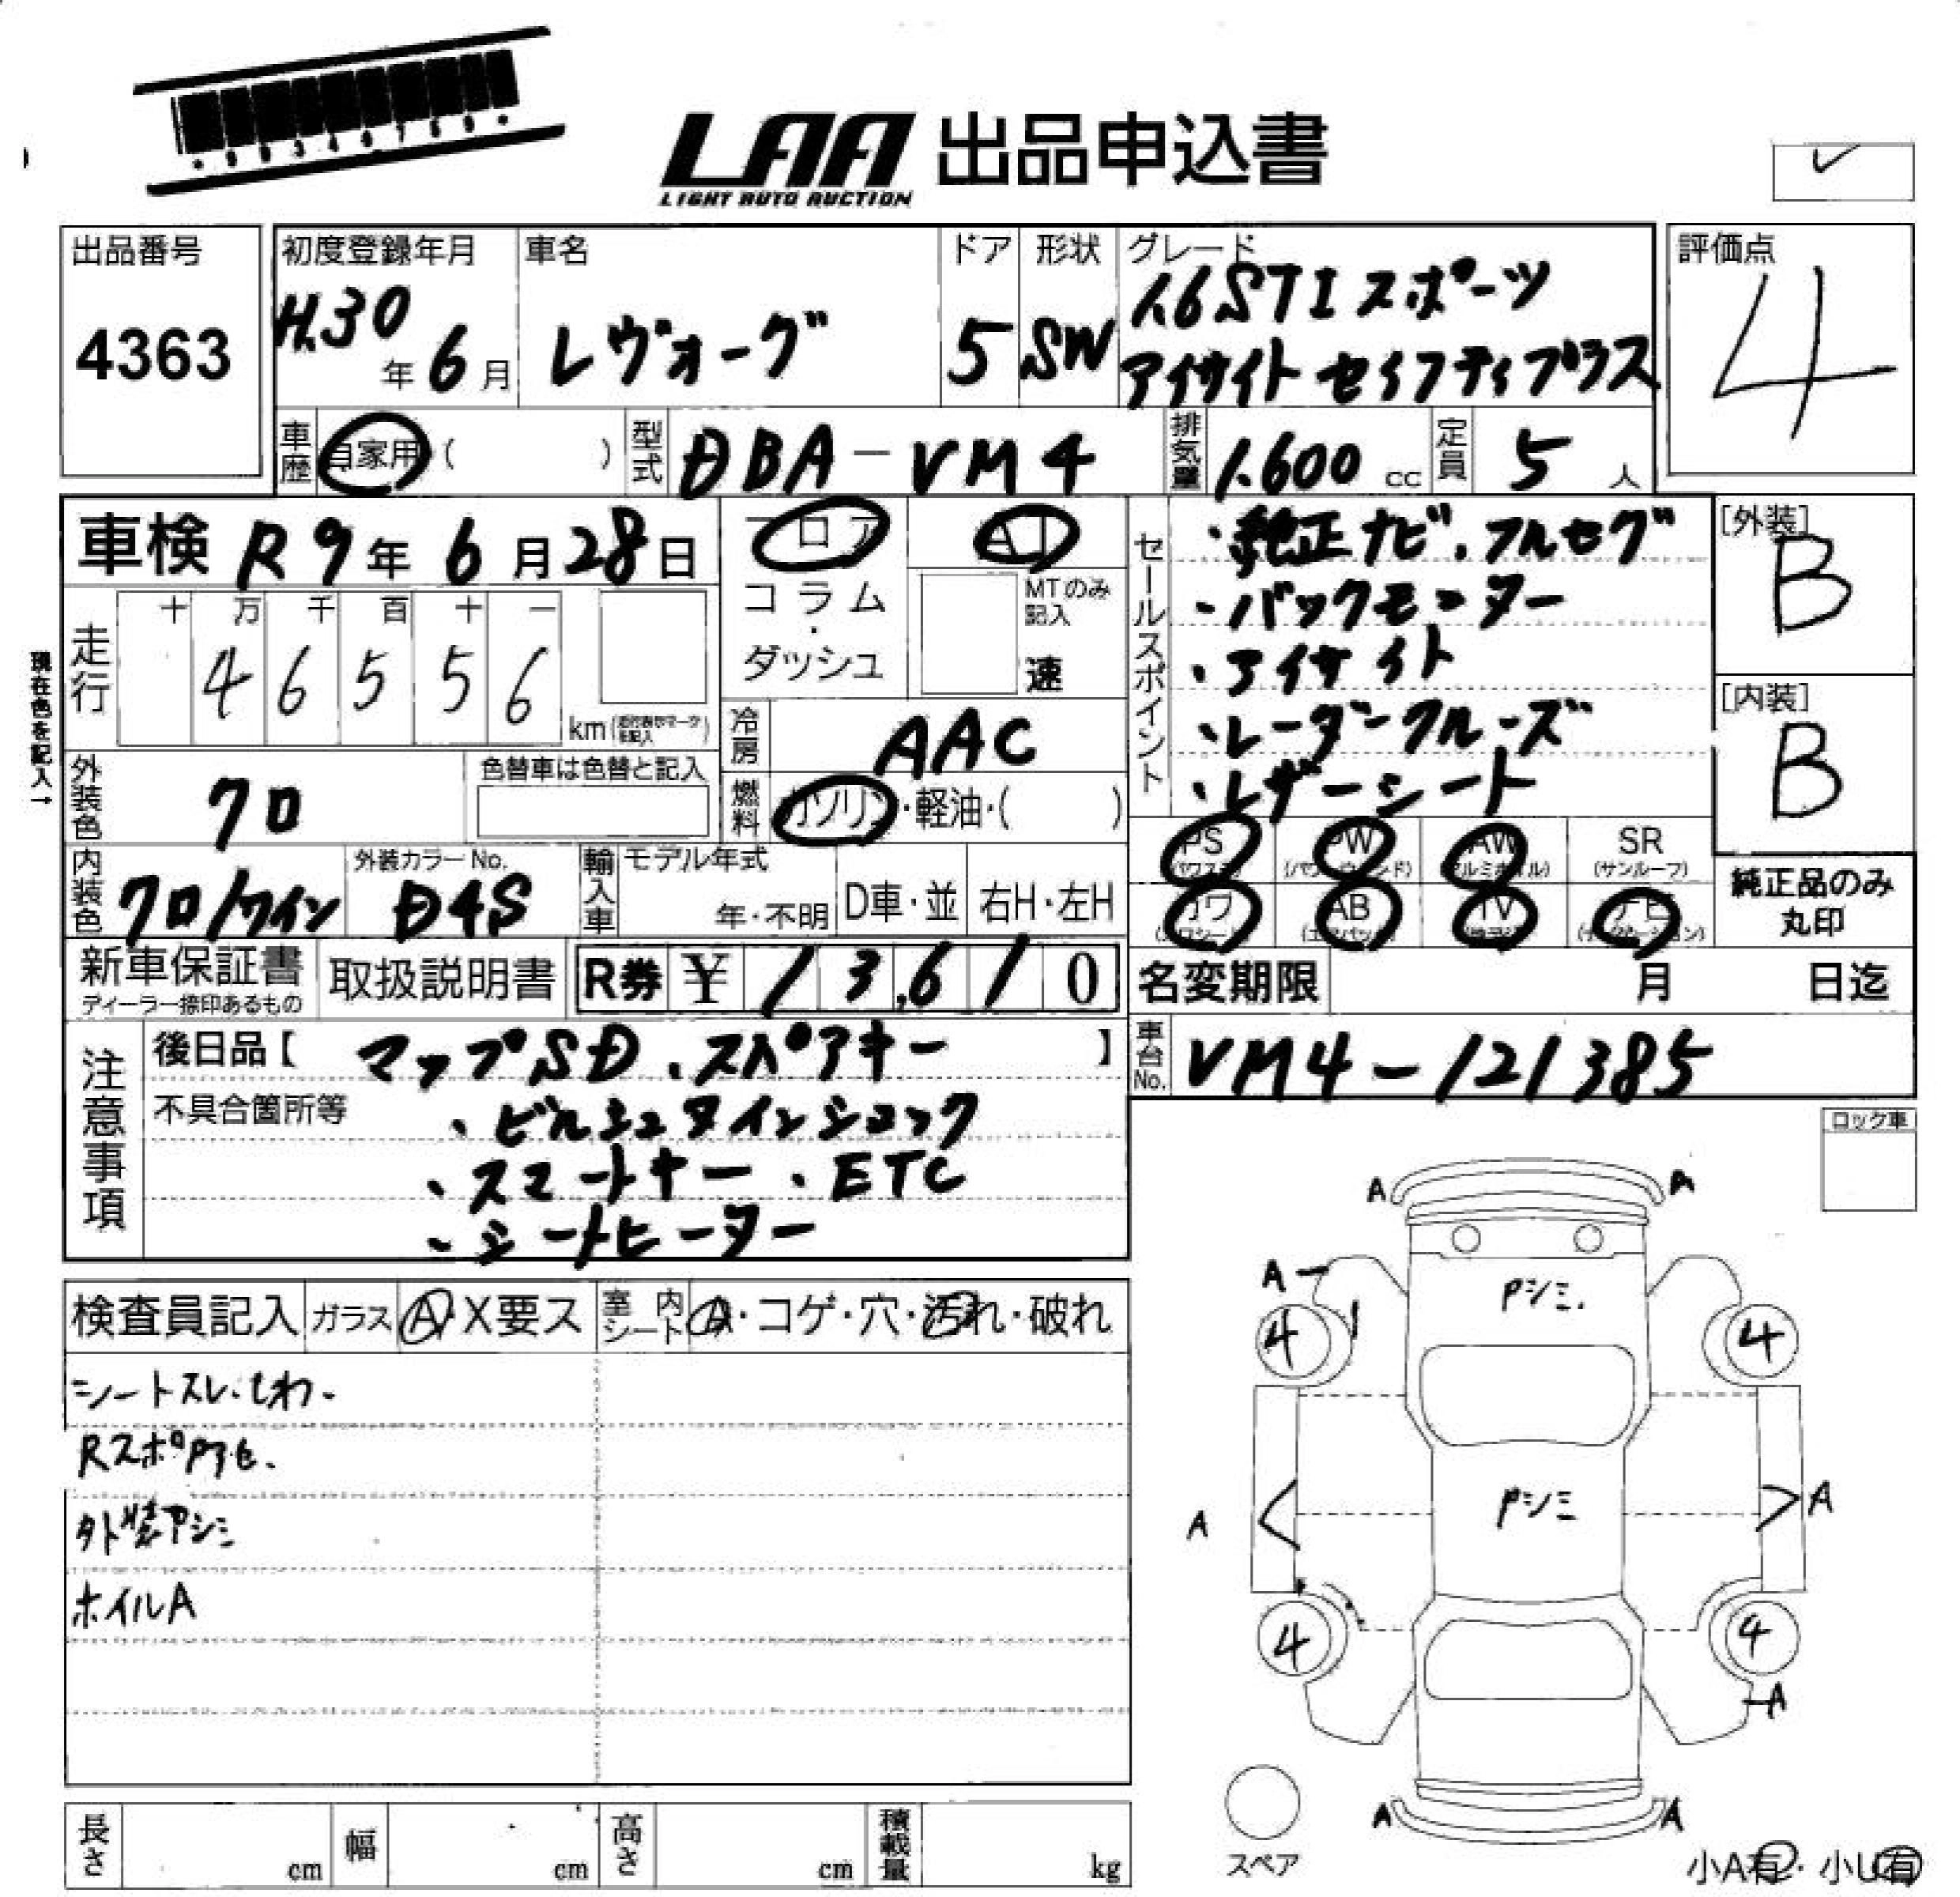 LAA 出品申込書
LIGHT AUTO AUCTION
出品番号
4363
初度登録年月
H.30年 6月
車名
レヴォーグ
ドア
5
形状
SW
グレード
1.6STIスポーツ
アイサイトセイフティプラス
評価点
4
車歴 自家用 ( )
型式 DBA-VM4
排気量 1.600 cc
定員 5 人
車検 R9年 6月28日
フロア
コラム
・
ダッシュ
AT
MTのみ記入
速
走行
十 万 千 百 十 一
4 6 5 5 6
km
現在色を記入→
冷房 AAC
外装色 クロ
色替車は色替と記入
燃料 ガソリン・軽油・( )
内装色 クロ/ワイン
外装カラーNo.
D4S
輸入車
モデル年式
年・不明
D車・並
右H・左H
セールスポイント
・純正ナビ、フルセグ
・バックモニター
・アイサイト
・レーダークルーズ
・レザーシート
[外装]
B
[内装]
B
PS (パワステ)
PW (パワーウインド)
AW (アルミホイル)
SR (サンルーフ)
カワ
AB (エアバック)
TV
ナビ (ナビゲーション)
純正品のみ
丸印
新車保証書
ディーラー捺印あるもの
取扱説明書
R券 ¥ 13,610
名変期限 月 日迄
車台No. VM4-121385
注意事項
後日品【 マップSD、スペアキー 】
不具合箇所等
・ビルシュタインショック
・スマートキー ・ETC
・シートヒーター
ロック車
検査員記入
ガラス A・X要ス
室内シート A・コゲ・穴・汚れ・破れ
シートスレ・しわ.
RスポPアセ.
外装Pシミ
ホイルA
A A
A
Pシミ.
4 4
Pシミ
A A
4 4
A
A A
スペア
小A有・小U有
長さ cm
幅 cm
高さ cm
積載量 kg